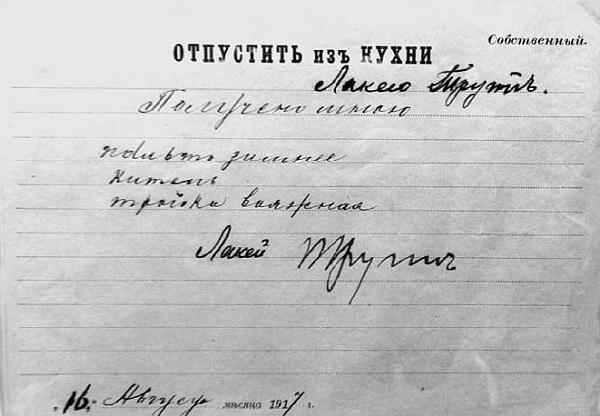 Собственный.
ОТПУСТИТЬ изъ КУХНИ
Лакею Труппъ.
Получено мною
пальто зимнее
китель
тройка вояжная
Лакей Труппъ
16 Август мѣсяца 1917 г.